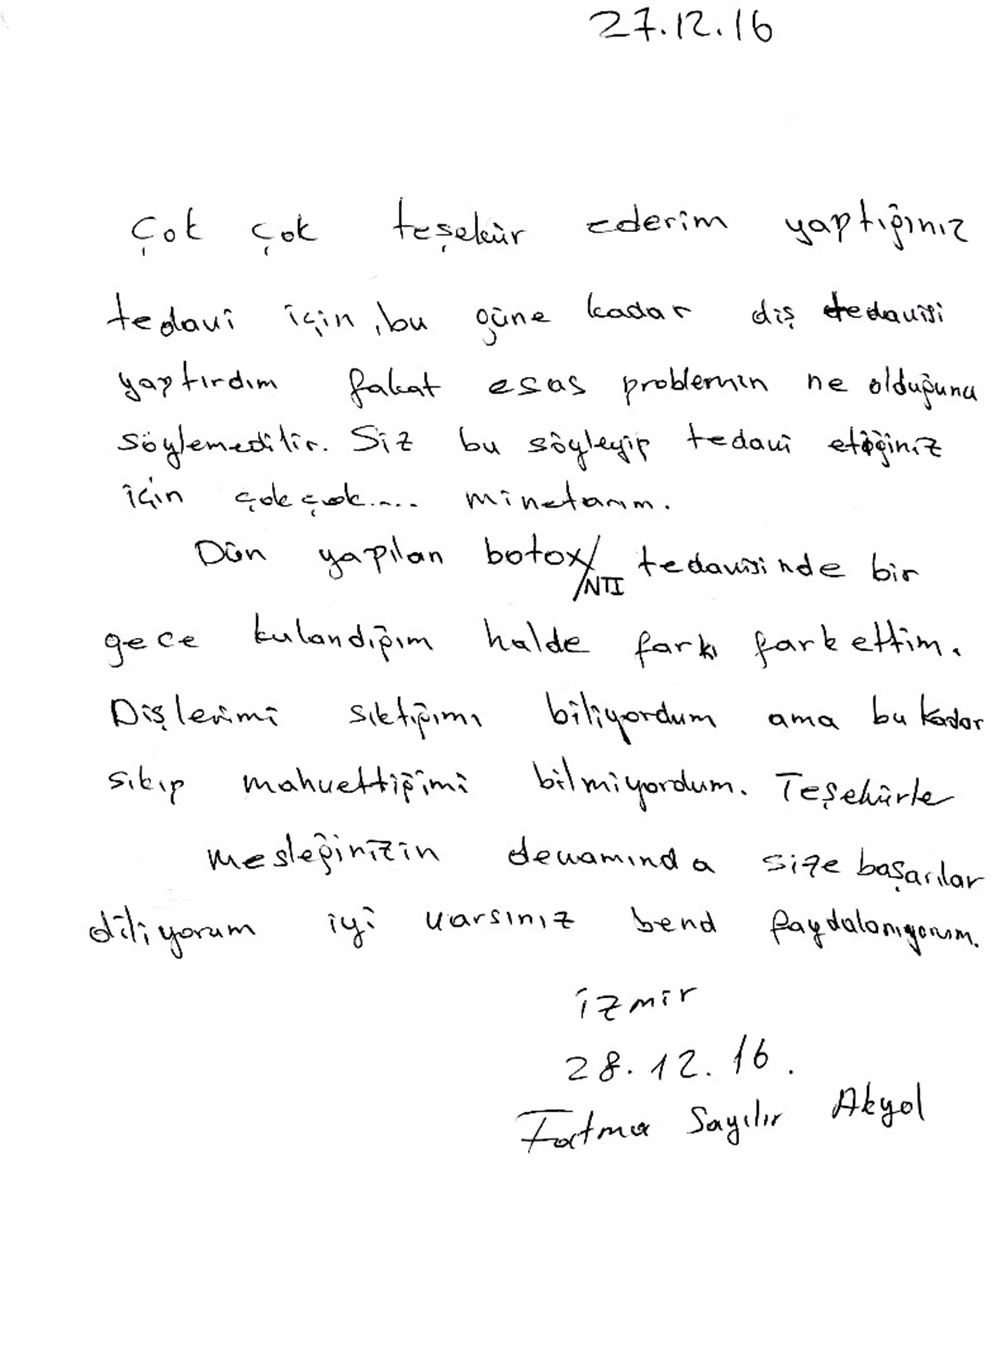 27.12.16
Çok çok teşekür ederim yaptığınız
tedavi için, bu güne kadar diş tedavisi
yaptırdım fakat esas problemin ne olduğunu
söylemedilir. Siz bu söyleyip tedavi etiğiniz
için çok çok.... minetarım.
Dün yapılan botox/NTI tedavisinde bir
gece kulandığım halde farkı fark ettim.
Dişlerimi sıktığımı biliyordum ama bu kadar
sıkıp mahvettiğimi bilmiyordum. Teşekürle
mesleğinizin devamında size başarılar
diliyorum iyi varsınız bend faydalanıyorum.
izmir
28.12.16.
Fatma Sayılır Akyol